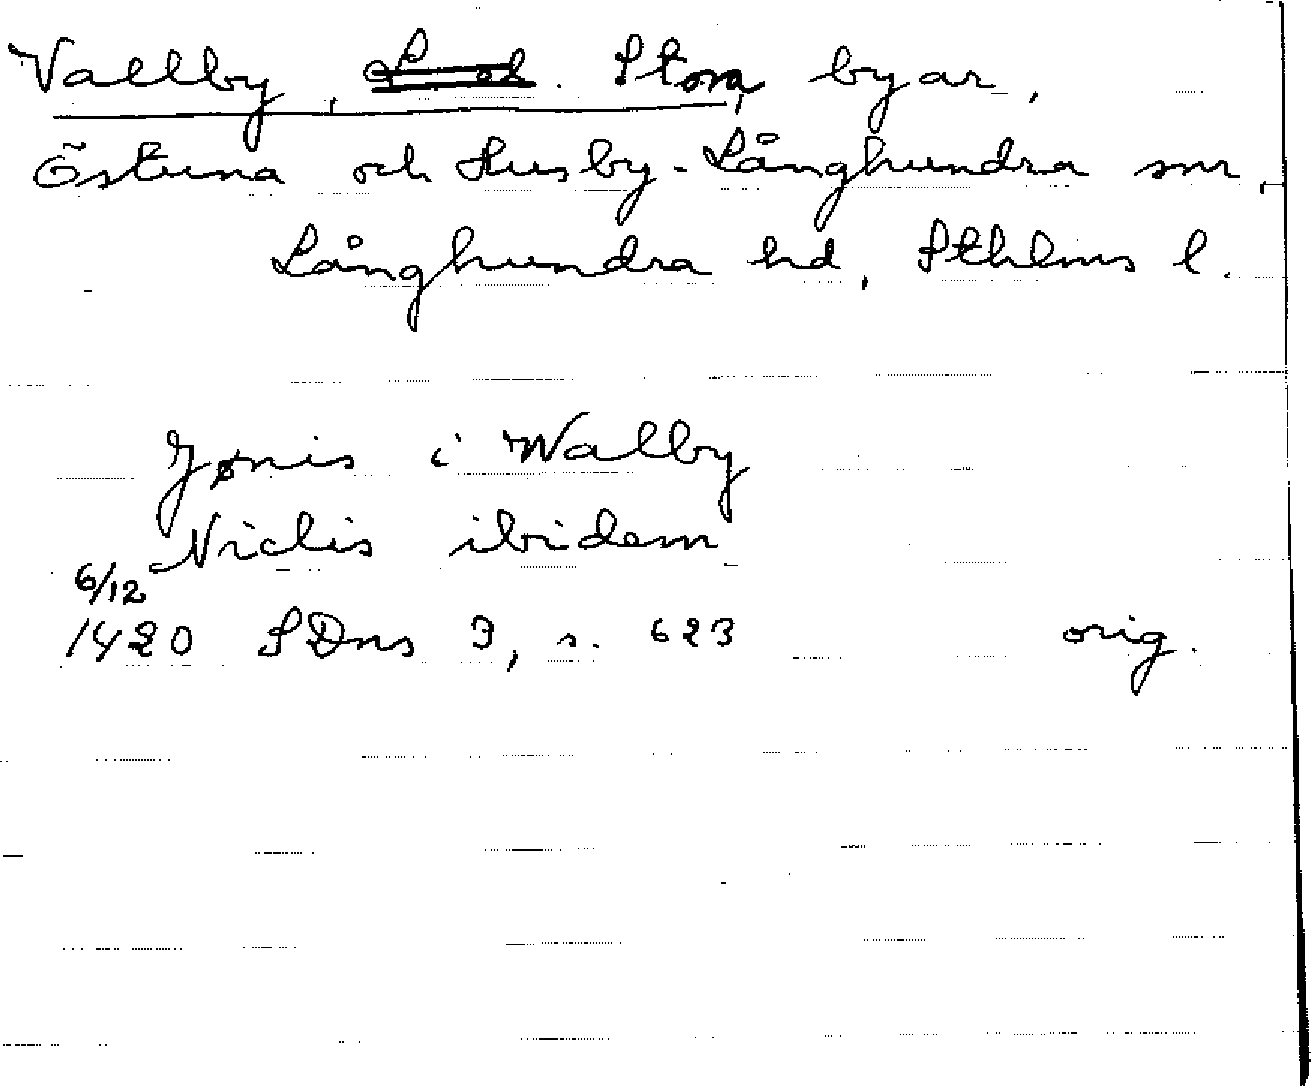 Vallby, L. och. Stora, byar,
Östuna och Husby-Långhundra snr,
Långhundra hd, Sthlms l.
Jønis i Walby
Niclis ibidem
6/12
1420 SDns 3, s. 623 orig.